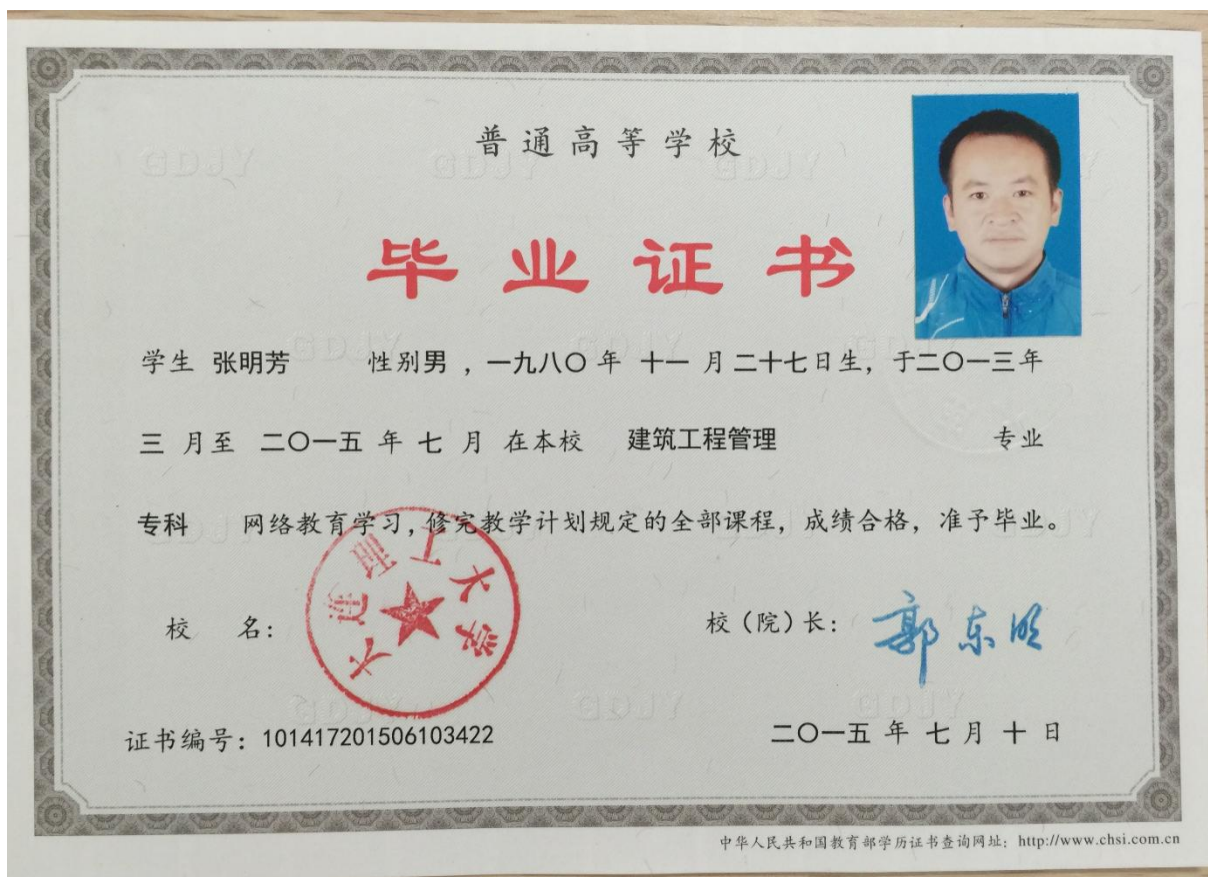 普通高等学校
毕业证书
学生 张明芳 性别男，一九八〇年 十一 月二十七日生，于二〇一三年
三 月至 二〇一五 年 七 月 在本校 建筑工程管理 专业
专科 网络教育学习，修完教学计划规定的全部课程，成绩合格，准予毕业。
大连理工大学
校 名： 校（院）长： 郭东明
证书编号：101417201506103422 二〇一五 年 七 月 十 日
中华人民共和国教育部学历证书查询网址：http://www.chsi.com.cn